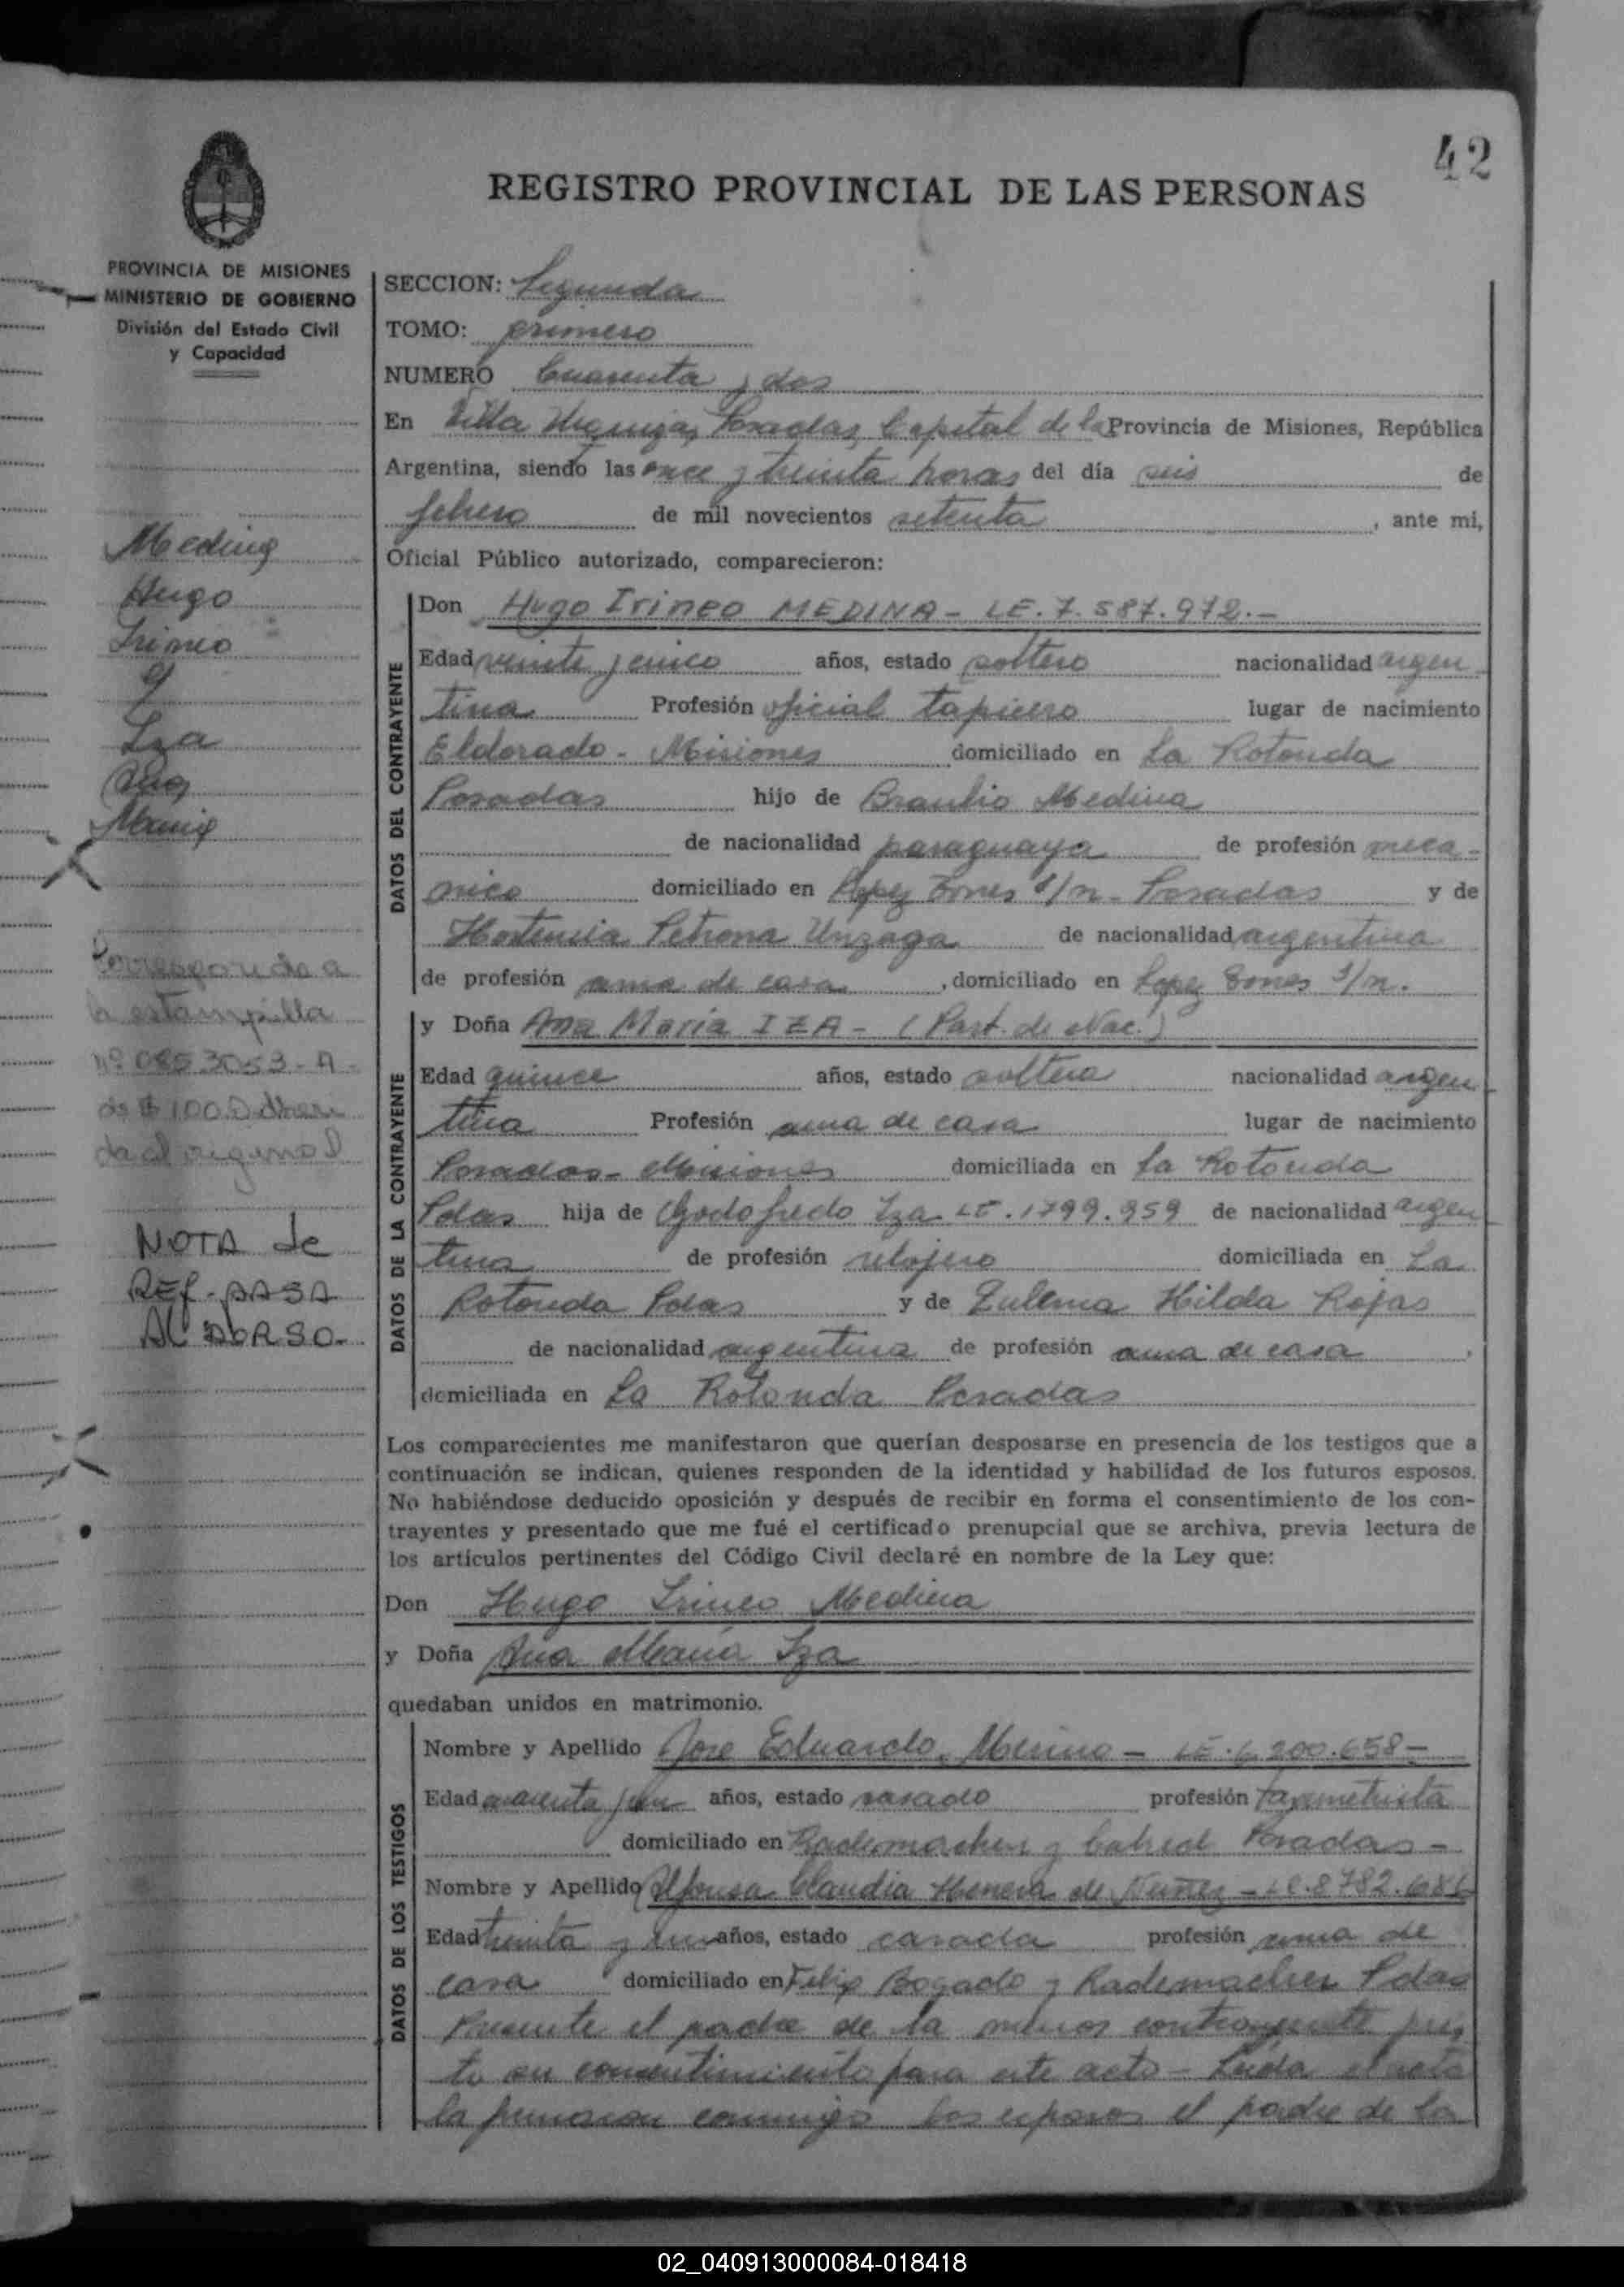 42
REGISTRO PROVINCIAL DE LAS PERSONAS
PROVINCIA DE MISIONES
MINISTERIO DE GOBIERNO
División del Estado Civil
y Capacidad
SECCION: Segunda
TOMO: primero
NUMERO Cuarenta y dos
En Villa Urquiza, Posadas, Capital de la Provincia de Misiones, República
Argentina, siendo las once y treinta horas del día seis de
febrero de mil novecientos setenta, ante mi,
Oficial Público autorizado, comparecieron:
Medina
Hugo
Irineo
y
Iza
Ana
Maria
Corresponde a
la estampilla
Nº 0853053-A-
de $ 100 Adheri
da al original
NOTA de
REF. PASA
AL DORSO-
DATOS DEL CONTRAYENTE
Don Hugo Irineo MEDINA - LE. 7.587.972.-
Edad veinte y cinco años, estado soltero nacionalidad argen
tina Profesión oficial tapicero lugar de nacimiento
Eldorado - Misiones domiciliado en La Rotonda
Posadas hijo de Braulio Medina
de nacionalidad paraguaya de profesión meca-
nico domiciliado en Lopez Torres s/n - Posadas y de
Hortensia Petrona Unzaga de nacionalidad argentina
de profesión ama de casa, domiciliado en Lopez Torres s/n.
DATOS DE LA CONTRAYENTE
y Doña Ana Maria IZA - (Part. de Nac.)
Edad quince años, estado soltera nacionalidad argen
tina Profesión ama de casa lugar de nacimiento
Posadas - Misiones domiciliada en La Rotonda
Pdas hija de Godofredo Iza LE. 1799.959 de nacionalidad argen
tina de profesión relojero domiciliada en La
Rotonda Pdas y de Zulema Hilda Rojas
de nacionalidad argentina de profesión ama de casa,
domiciliada en La Rotonda Posadas
Los comparecientes me manifestaron que querían desposarse en presencia de los testigos que a
continuación se indican, quienes responden de la identidad y habilidad de los futuros esposos.
No habiéndose deducido oposición y después de recibir en forma el consentimiento de los con-
trayentes y presentado que me fué el certificado prenupcial que se archiva, previa lectura de
los artículos pertinentes del Código Civil declaré en nombre de la Ley que:
Don Hugo Irineo Medina
y Doña Ana Maria Iza
quedaban unidos en matrimonio.
DATOS DE LOS TESTIGOS
Nombre y Apellido Jose Eduardo Merino - LE. 6.200.658-
Edad cuarenta y un años, estado casado profesión taximetrista
domiciliado en Rademacher y Cabred Posadas-
Nombre y Apellido Alfonsa Claudia de Nuñez
Edad treinta y un años, estado casada profesión ama de
casa domiciliado en Felix Bogado y Rademacher Pdas
Presente el padre de la menor contrayente pres
ta su consentimiento para este acto - Leida el acta
la firmaron conmigo los esposos el padre de la
02_040913000084-018418